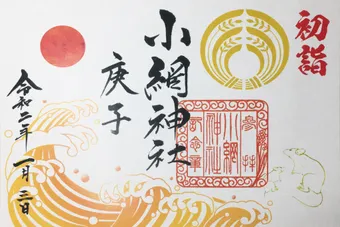 初詣
小網神社
庚子
令和二年一月三日
参拝
小網
神社